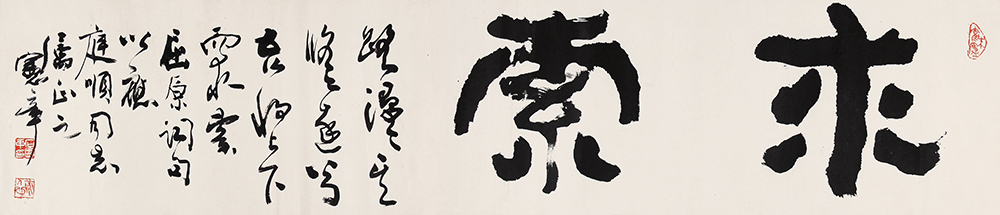 求索
路漫漫其
修遠兮
吾將上下
而求索
屈原詞句
以應
庭順同志
屬正之
憲章